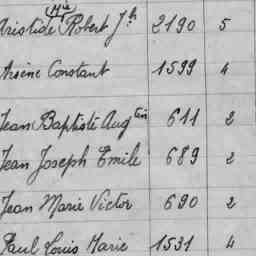 Mie
Aristide Robert Jh 2190 5
Arsène Constant 1599 4
Jean Baptiste Augtin 611 2
Jean Joseph Emile 689 2
Jean Marie Victor 690 2
Paul Louis Marie 1531 4